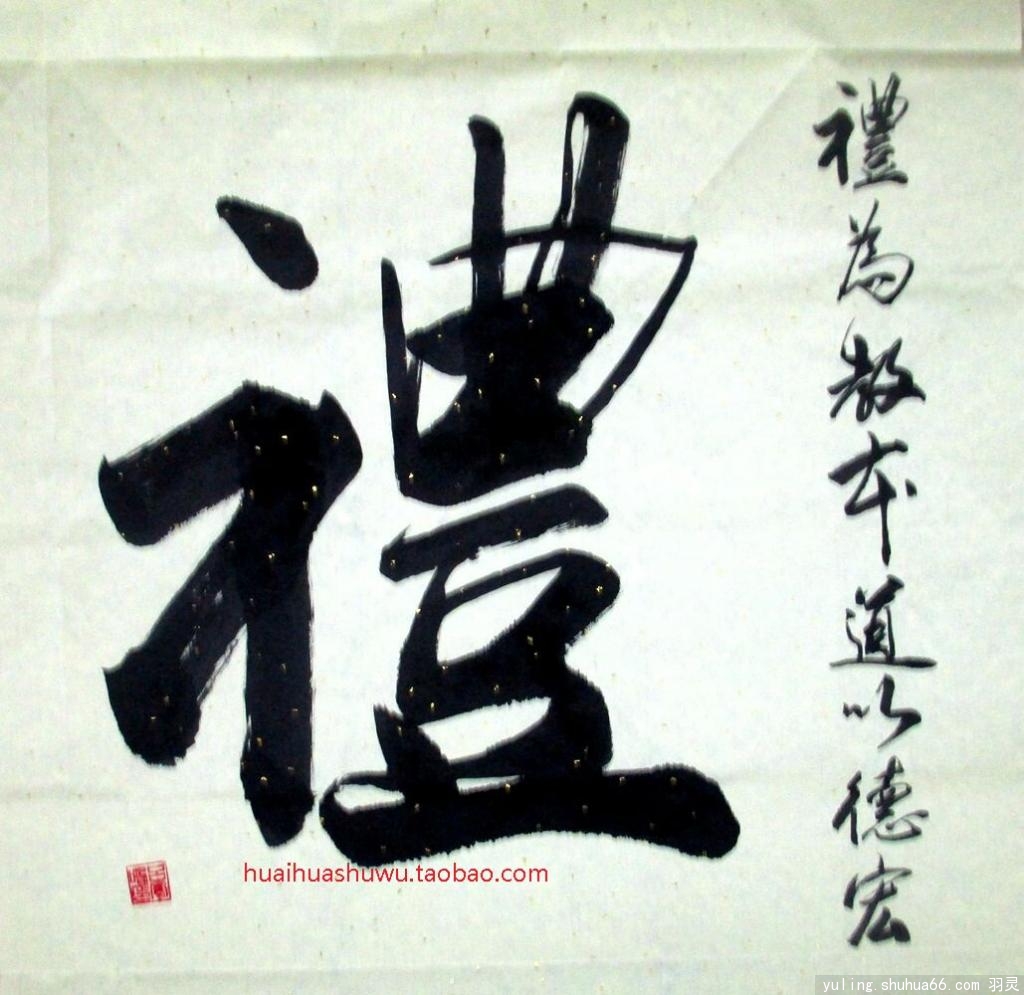 禮為教本道以德宏
禮
huaihuashuwu.taobao.com
yuling.shuhua66.com 羽灵